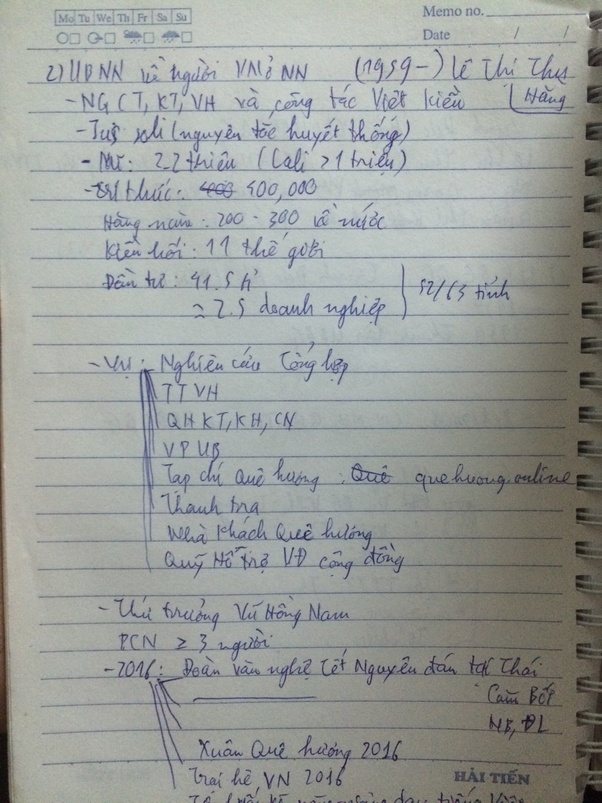 Mo Tu We Th Fr Sa Su
Memo no.
Date / /
2) UBNN về người VN ở NN (1959-) Lê Thị Thu Hằng
- NG CT, KT, VH và công tác Việt kiều
- Jus soli (nguyên tắc huyết thống)
- Mĩ: 2.2 triệu (Cali > 1 triệu)
- Trí thức: 400 400,000
Hàng năm: 200 - 300 về nước
Kiều hối: 11 thế giới
Đầu tư: 41.5 tỉ
≈ 2.5 doanh nghiệp
52/63 tỉnh
- Vụ: Nghiên cứu Tổng hợp
TTVH
QH KT, KH, CN
VP UB
Tạp chí Quê hương: Quê quehuong.online
Thanh tra
Nhà khách Quê hương
Quỹ Hỗ trợ VĐ cộng đồng
- Thứ trưởng Vũ Hồng Nam
PCN ≥ 3 người
- 2016: Đoàn văn nghệ Tết Nguyên đán tại Thái
Cam Bốt
NB, ĐL
Xuân Quê hương 2016
Trại hè VN 2016
HẢI TIẾN